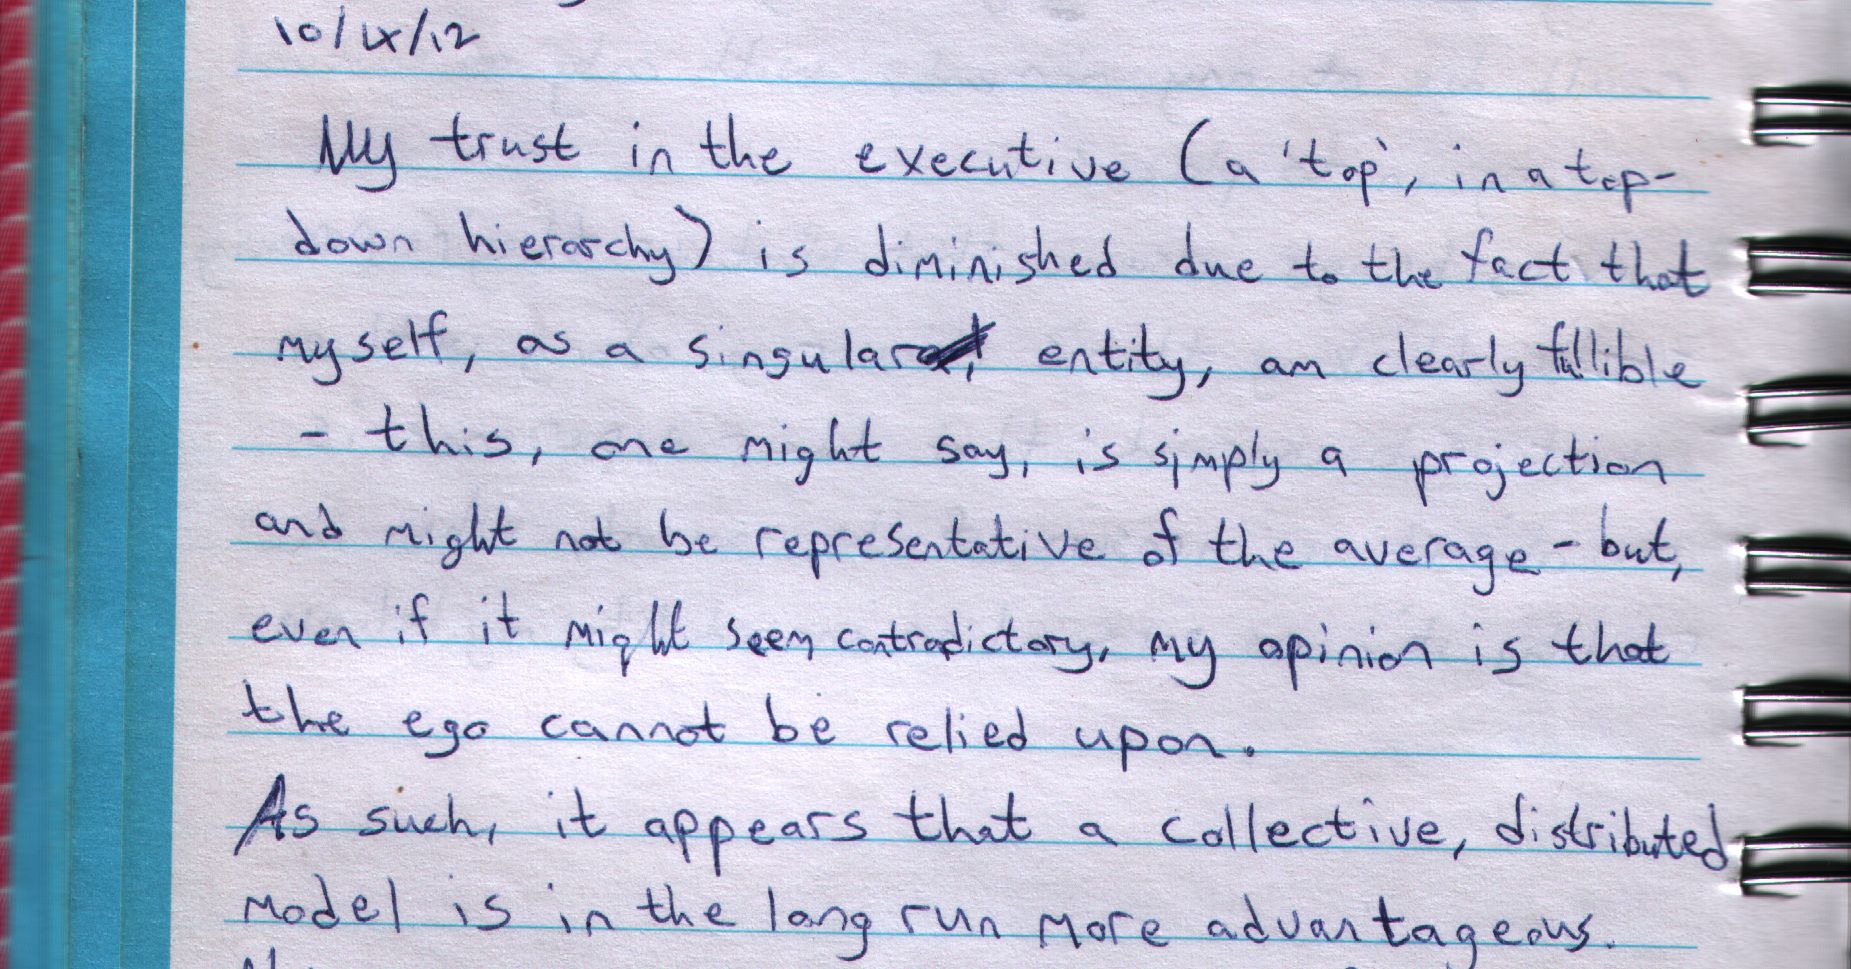 10/IX/12
My trust in the executive (a 'top', in a top-
down hierarchy) is diminished due to the fact that
myself, as a singular, entity, am clearly fallible
- this, one might say, is simply a projection
and might not be representative of the average - but,
even if it might seem contradictory, my opinion is that
the ego cannot be relied upon.
As such, it appears that a collective, distributed
model is in the long run more advantageous.